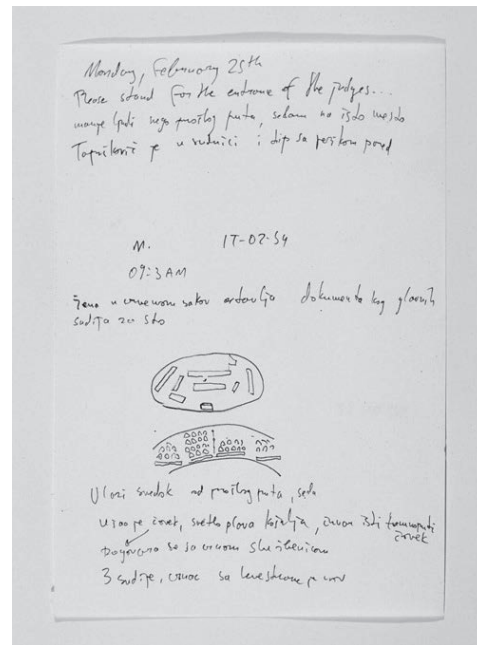 Monday, February 25th
Please stand for the entrance of the judges...
manje ljudi nego prošlog puta, sedam na isto mesto
Tapušković je u sudnici i tip sa perikom pored
M. IT-02-54
09:3 AM
žena u crvenom sakou ostavlja dokumenta kog glavnih
sudija za sto
Ulazi svedok od prošlog puta, seda
Ušao je čovek, svetlo plava košulja, isti
čovek
Dogovara se sa crnom službenicom
3 sudije, crnac sa